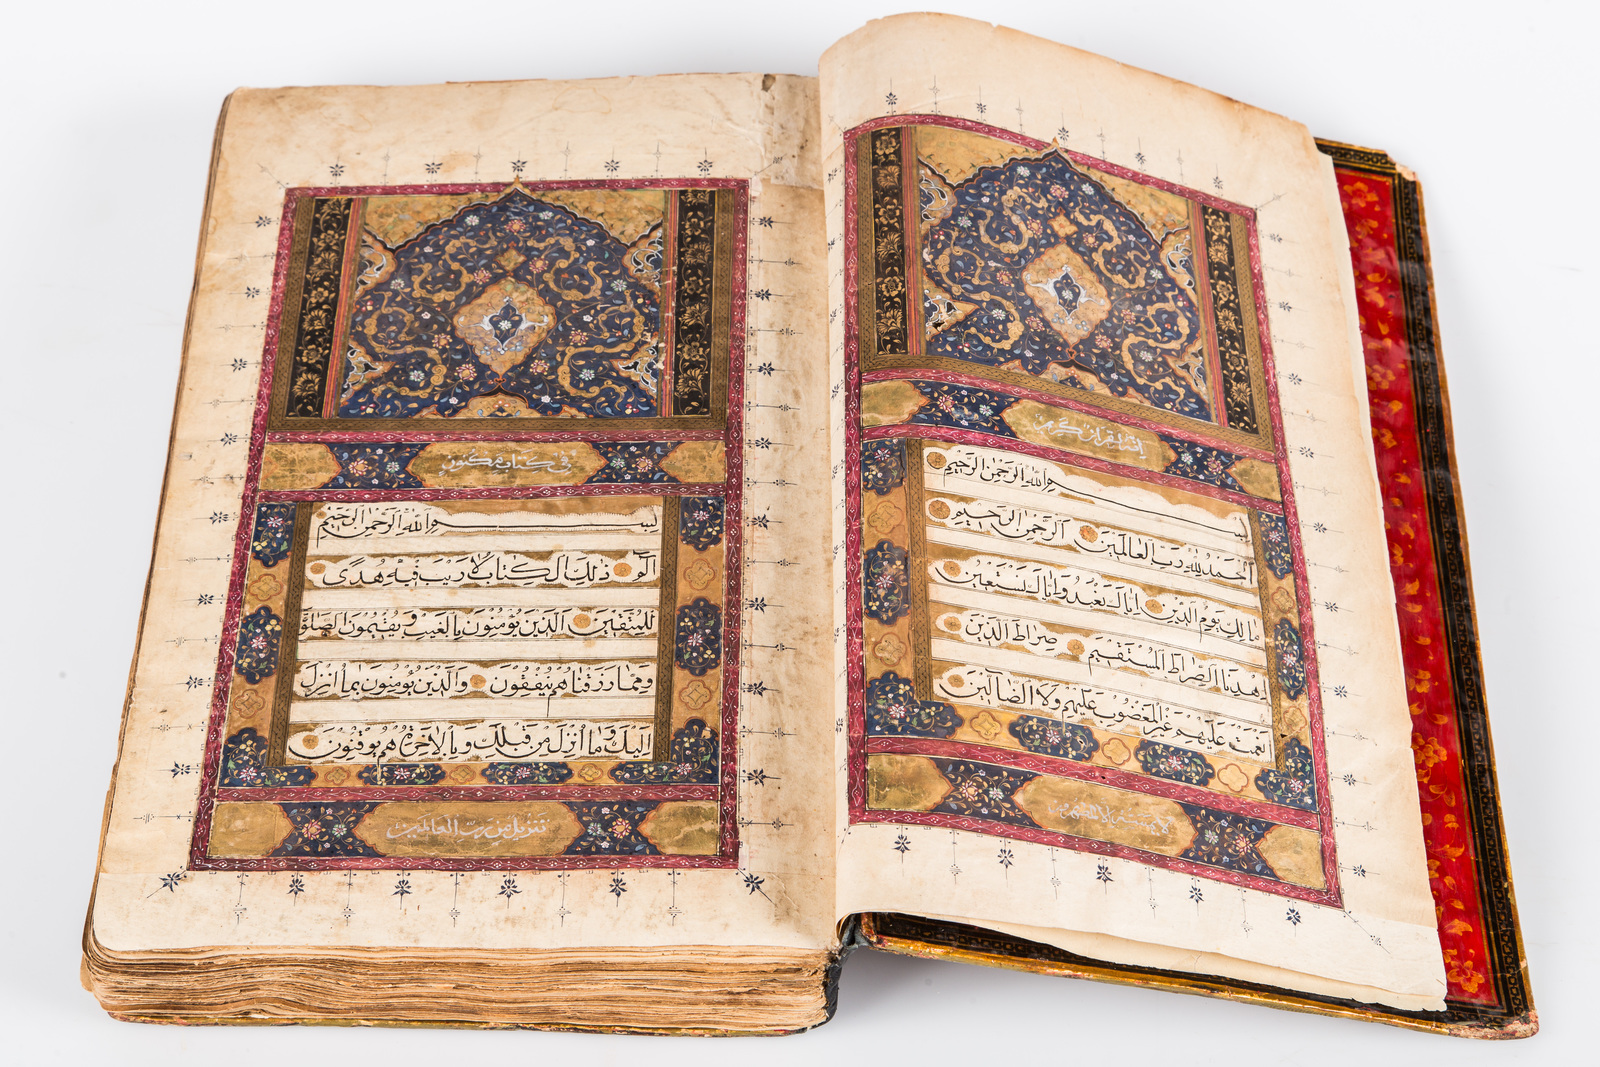 إنه لقرآن كريم
بسم الله الرحمن الرحيم
الحمد لله رب العالمين الرحمن الرحيم
مالك يوم الدين إياك نعبد وإياك نستعين
اهدنا الصراط المستقيم صراط الذين
أنعمت عليهم غير المغضوب عليهم ولا الضالين
لا يمسه إلا المطهرون
في كتاب مكنون
بسم الله الرحمن الرحيم
الم ذلك الكتاب لا ريب فيه هدى
للمتقين الذين يؤمنون بالغيب ويقيمون الصلوة
ومما رزقناهم ينفقون والذين يؤمنون بما أنزل
إليك وما أنزل من قبلك وبالآخرة هم يوقنون
تنزيل من رب العالمين